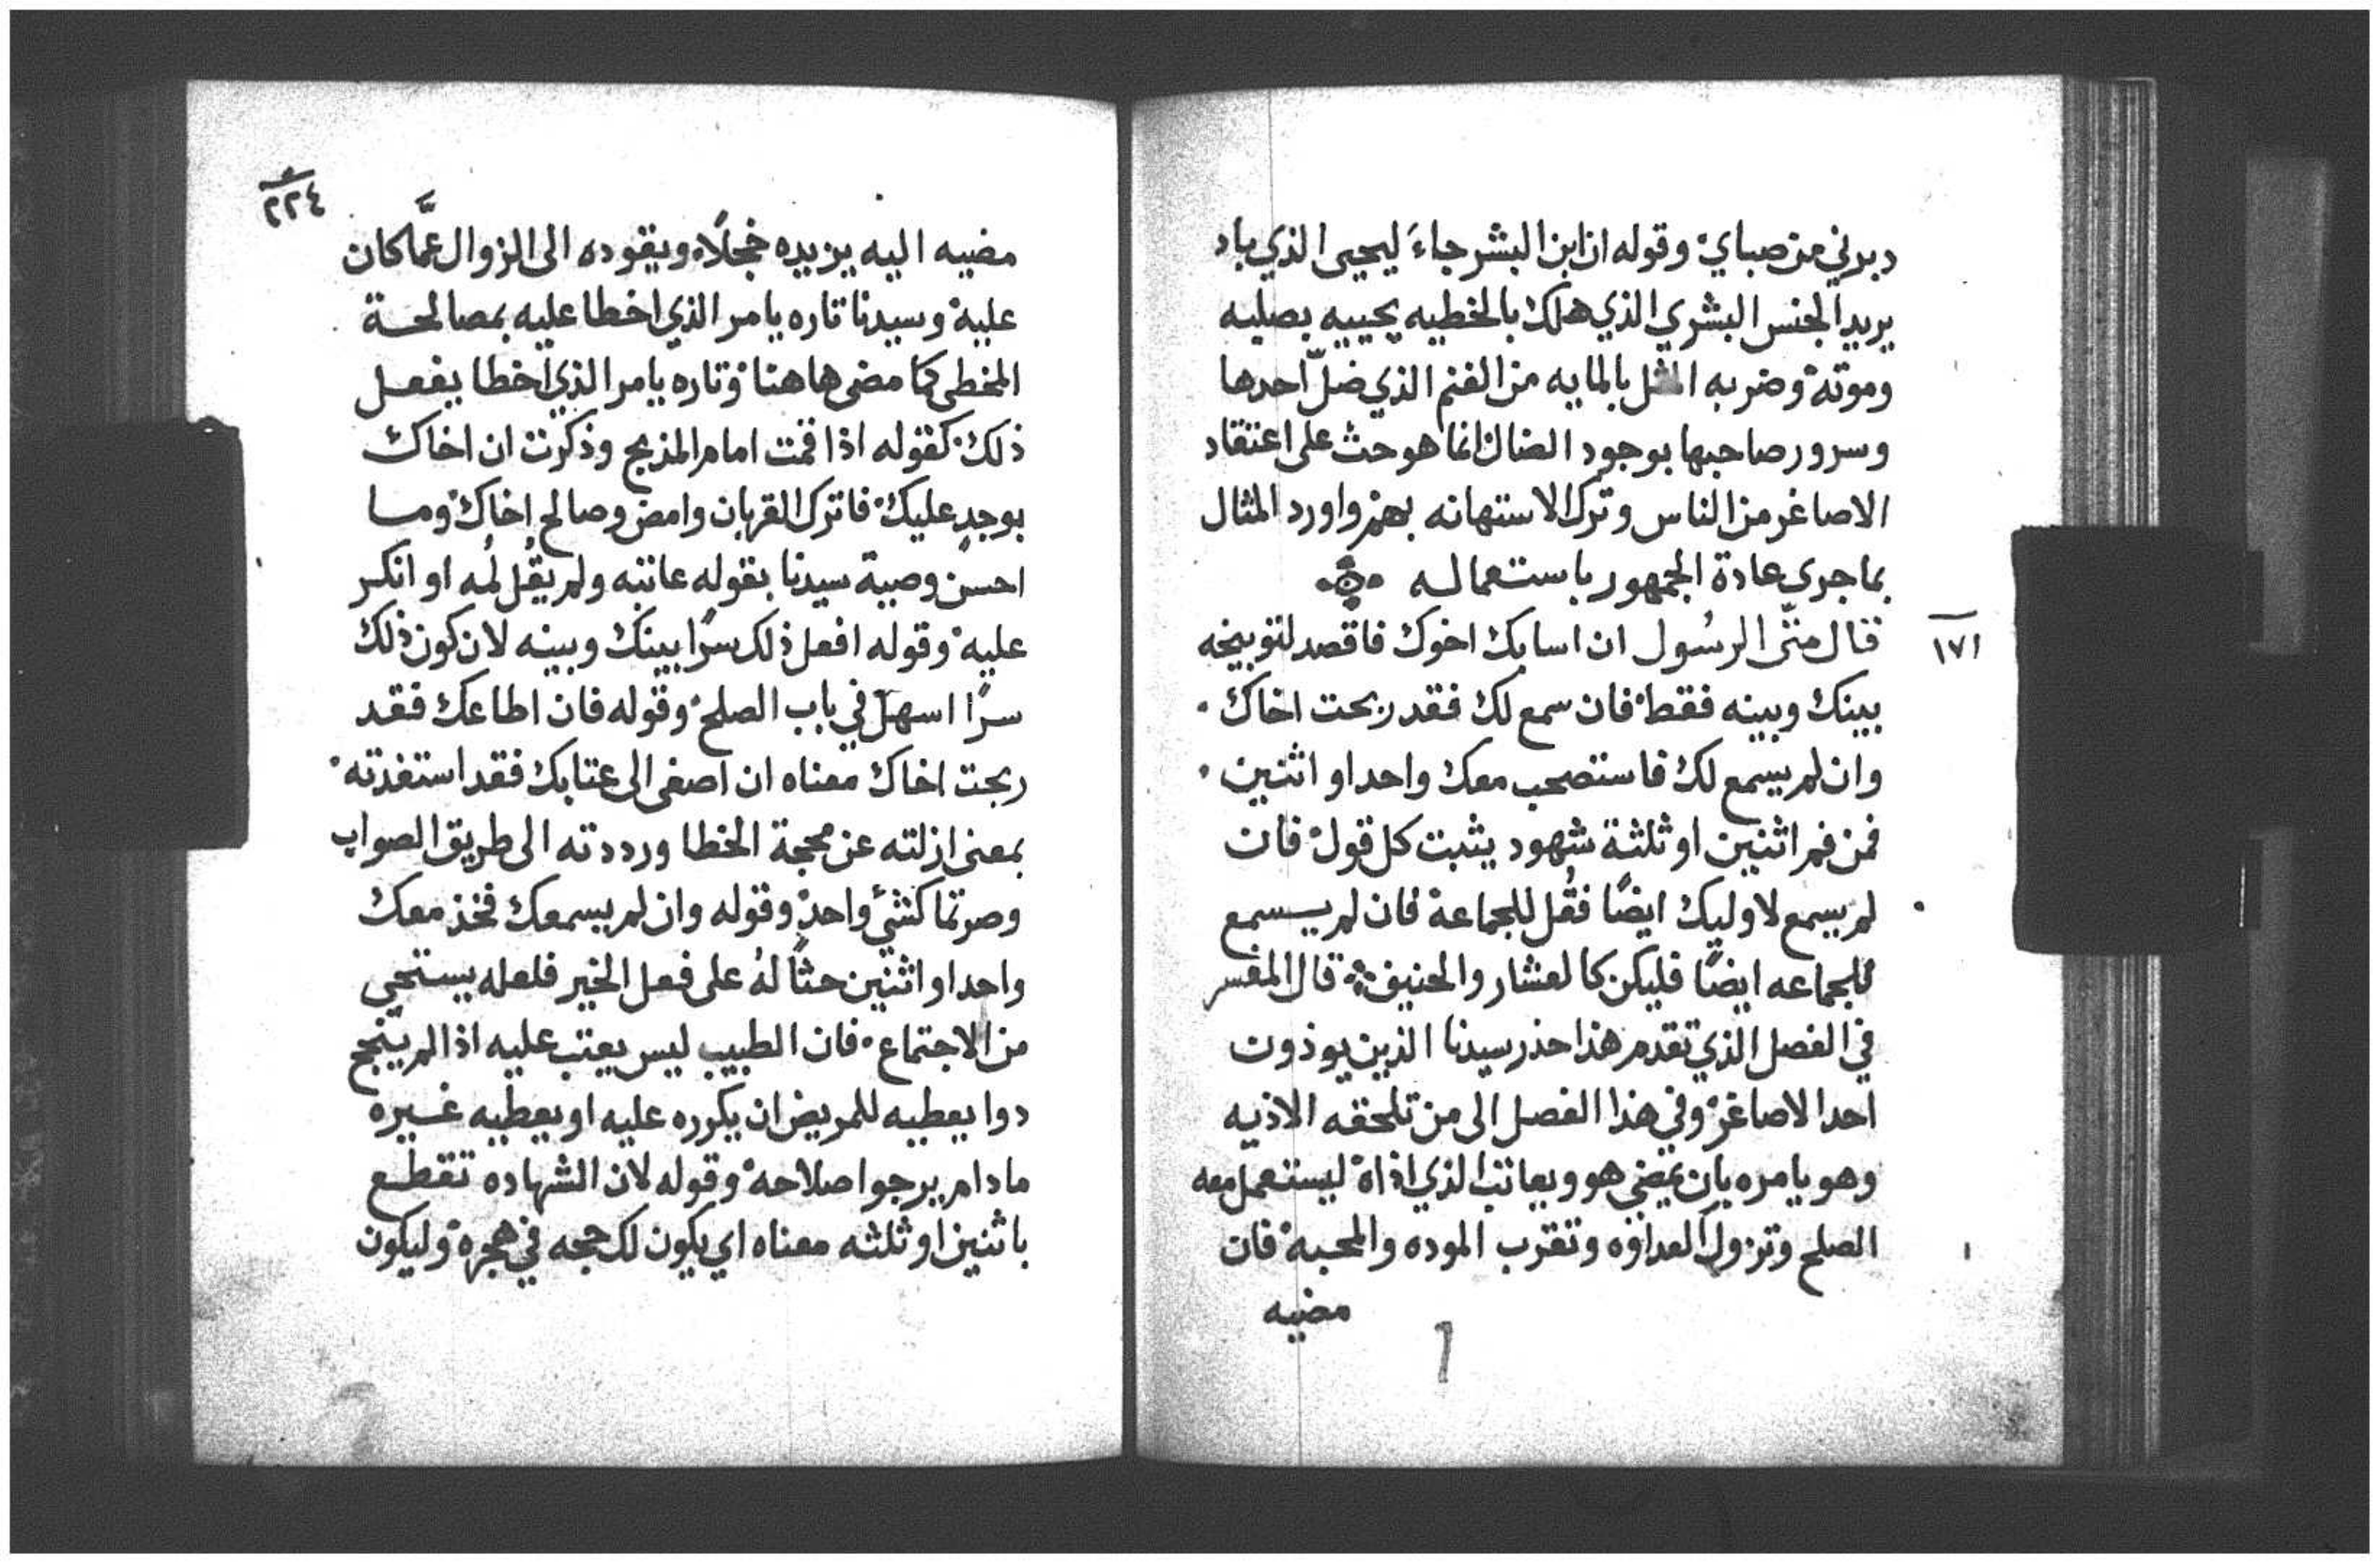 دبرني من صباي۰ وقوله ان ابن البشر جاءَ ليحيى الذي باد
يريد الجنس البشري الذي هلك بالخطيه يحييه بصلبه
وموته۰ وضربه المثل بالمايه من الغنم الذي ضلّ احدها
وسرور صاحبها بوجود الضال انما هو حث على اعتقاد
الاصاغر من الناس وترك الاستهانه بهم۰ واورد المثال
بما جرى عادة الجمهور باستعماله
١٧١
قال متّى الرسُول ان اسا بك اخوك فاقصد لتوبيخه
بينك وبينه فقط۰ فان سمع لك فقد ربحت اخاك۰
وان لم يسمع لك فاستصحب معك واحدا او اثنين۰
فمن فم اثنين او ثلثة شهود يثبت كل قول۰ فان
لم يسمع لاوليك ايضًا فقُل للجماعة۰ فان لم يسمع
للجماعه ايضًا فليكن كالعشار والحنيف۰ قال المفسر
في الفصل الذي تقدم هذا حذر سيدنا الذين يوذون
احد الاصاغر۰ وفي هذا الفصل الى من تلحقه الاذيه
وهو يامره بان يمضي هو ويعاتب الذي اذاه ليستعمل معه
الصلح وتزول العداوه وتقرب الموده والمحبة۰ فان
مضيه
٢٢٤
مضيه اليه يزيده خجلًا۰ ويقوده الى الزوال عمَّا كان
عليه۰ وسيدنا تاره يامر الذي اخطا عليه بمصالحة
المخطى كما مضى هاهنا۰ وتاره يامر الذي اخطا بفعل
ذلك۰ كقوله اذا قمت امام المذبح وذكرت ان اخاك
يوجد عليك۰ فاترك القربان وامض وصالح اخاك۰ وما
احسن وصية سيدنا بقوله عاتبه ولم يقُل لُمه او انكر
عليه۰ وقوله افعل ذلك سرًا بينك وبينه لان كون ذلك
سرًا اسهل في باب الصلح۰ وقوله فان اطاعك فقد
ربحت اخاك معناه ان اصغى الى عتابك فقد استفدته۰
بمعنى ازلته عن محجة الخطا ورددته الى طريق الصواب
وصرتما كشي واحد۰ وقوله وان لم يسمعك فخذ معك
واحدا او اثنين حثًا لهُ على فعل الخير فلعله يستحي
من الاجتماع۰ فان الطبيب ليس يعتب عليه اذا لم ينجح
دوا يعطيه للمريض ان يكرره عليه او يعطيه غيره
ما دام يرجوا صلاحه۰ وقوله لان الشهاده تقطع
باثنين او ثلثه معناه اي يكون لك حجه في هجره۰ وليكون